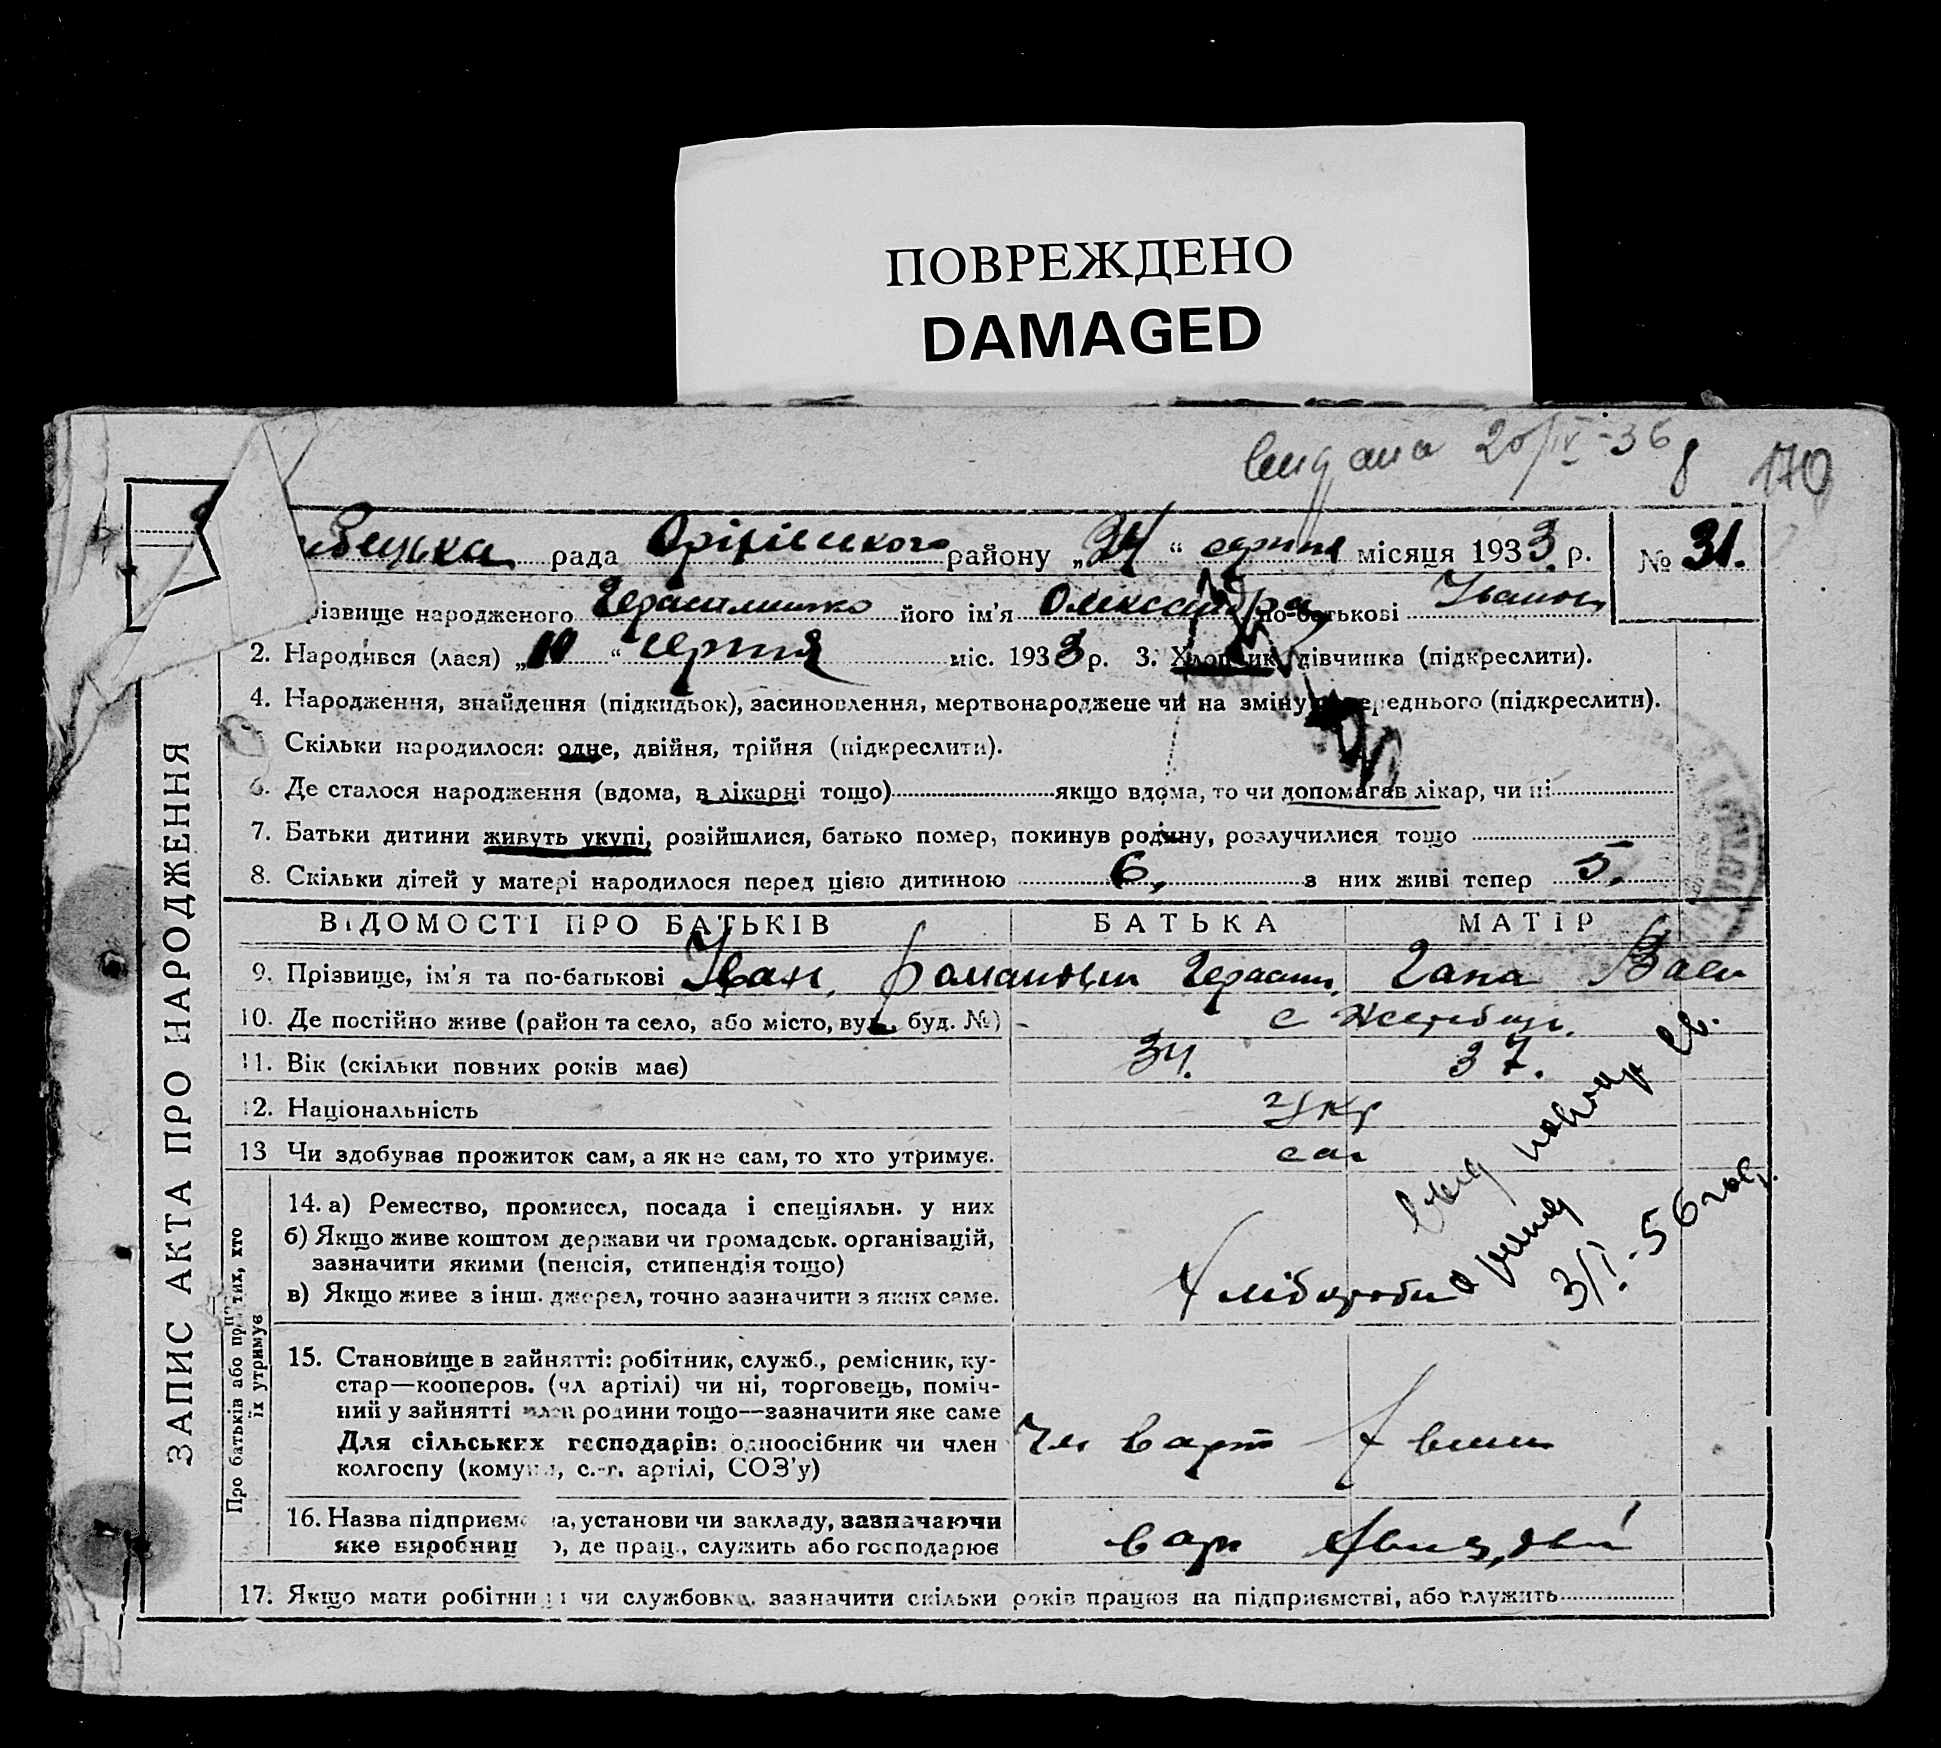 ПОВРЕЖДЕНО
DAMAGED
видана 20/IV-36
170
рада Оріхівського району „24“ серпня місяця 1933 р. № 31.
різвище народженого Герасименко його ім'я Олександра по-батькові Іванов
2. Народився (лася) „10“ серпня міс. 1933 р. 3. Хлопчик, дівчинка (підкреслити).
4. Народження, знайдення (підкидьок), засиновлення, мертвонароджене чи на зміну переднього (підкреслити).
Скільки народилося: одне, двійня, трійня (підкреслити).
6. Де сталося народження (вдома, в лікарні тощо) якщо вдома, то чи допомагав лікар, чи ні
7. Батьки дитини живуть укупі, розійшлися, батько помер, покинув родину, розлучилися тощо
8. Скільки дітей у матері народилося перед цією дитиною 6, з них живі тепер 5.
ВІДОМОСТІ ПРО БАТЬКІВ БАТЬКА МАТІР
9. Прізвище, ім'я та по-батькові Іван Романович Герасим. Гана Васи
10. Де постійно живе (район та село, або місто, вул., буд. №) с Жеребець.
11. Вік (скільки повних років має) 34. 37.
12. Національність Укр
13 Чи здобуває прожиток сам, а як не сам, то хто утримує. сам
14. а) Ремество, промисел, посада і спеціяльн. у них
б) Якщо живе коштом держави чи громадськ. організацій,
зазначити якими (пенсія, стипендія тощо)
в) Якщо живе з інш. джерел, точно зазначити з яких саме. Хлібороби
вид повтор св.
3/I-56 год.
15. Становище в зайнятті: робітник, служб., ремісник, ку-
стар—кооперов. (чл артілі) чи ні, торговець, поміч-
ний у зайнятті член родини тощо—зазначити яке саме
Для сільських господарів: одноосібник чи член
колгоспу (комуни, с.-г. артілі, СОЗ'у) Чл
16. Назва підприємства, установи чи закладу, зазначаючи
яке виробниц о, де прац., служить або господарює
17. Якщо мати робітниця чи службовка, зазначити скільки років працює на підприємстві, або служить
ЗАПИС АКТА ПРО НАРОДЖЕННЯ
Про батьків або про тих, хто
їх утримує